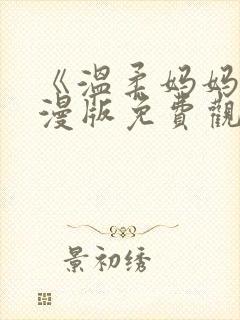 《温柔妈妈
漫版免費觀
景初绣